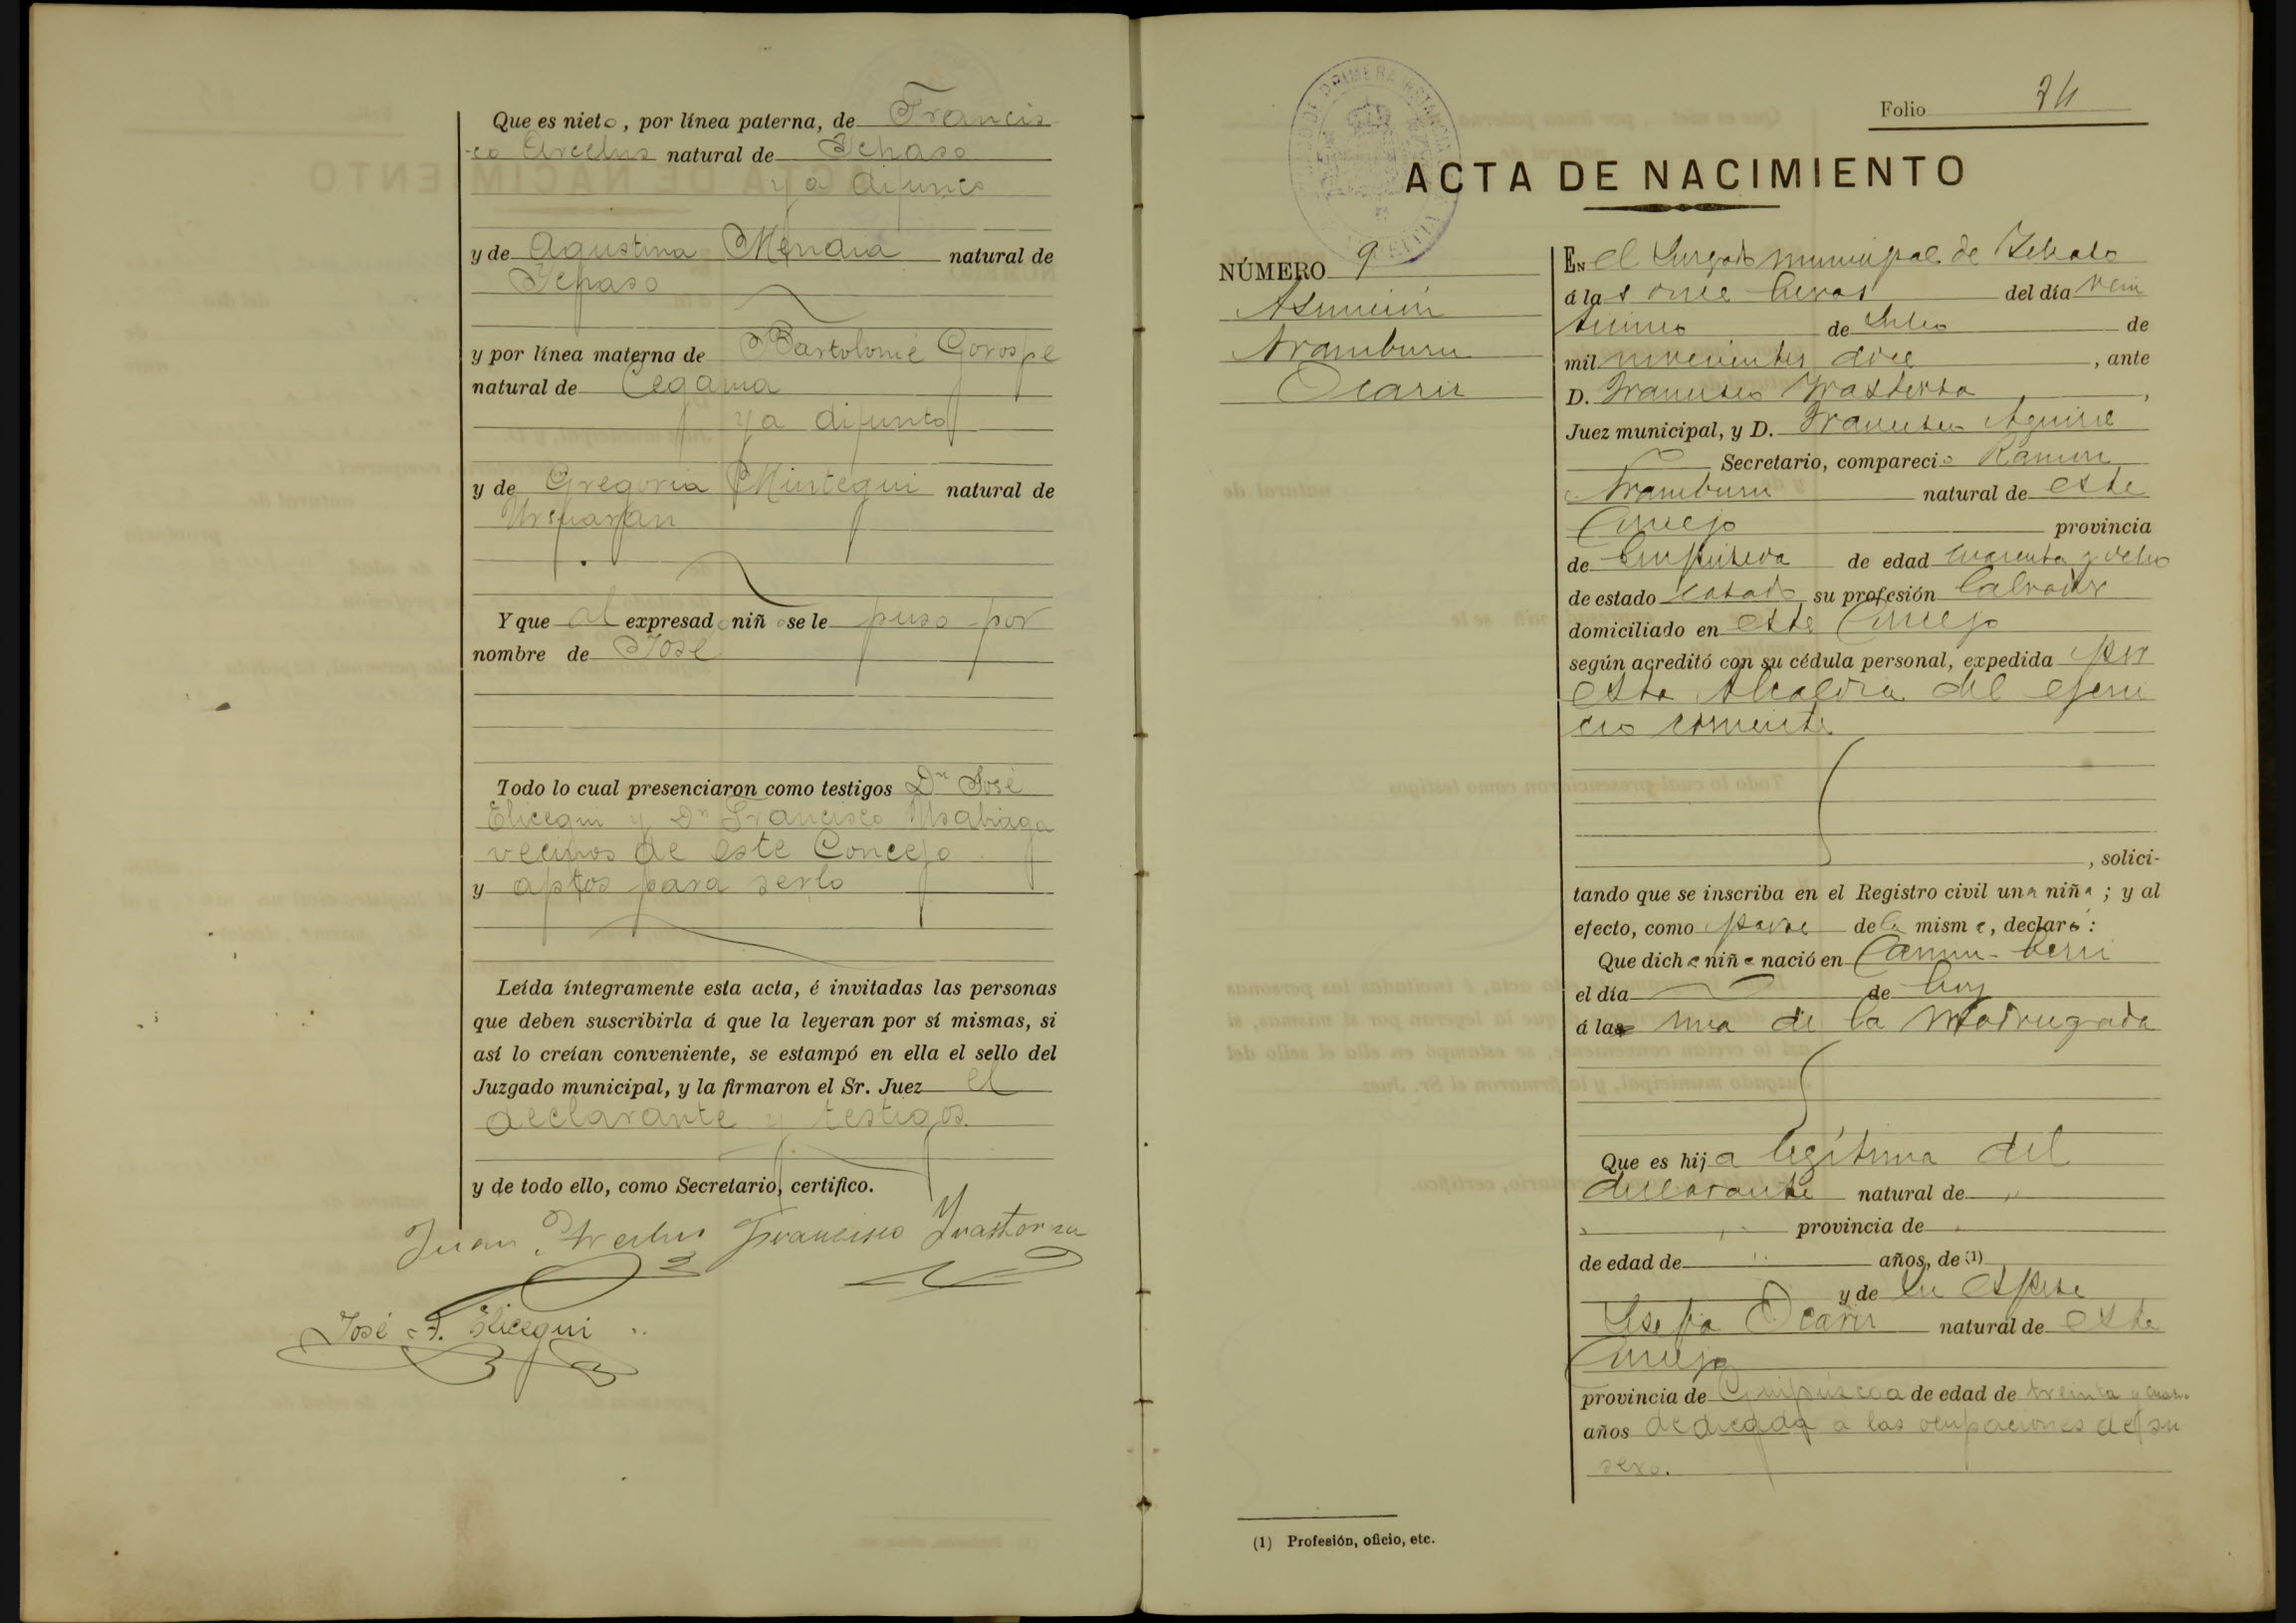 Que es nieto, por línea paterna, de Francis-
co Arcelus natural de Ychaso
ya difunto
y de Agustina Mendia natural de
Ychaso
y por línea materna de Bartolomé Gorospe
natural de Cegama
ya difunto
y de Gregoria Mintegui natural de
Y que al expresado niño se le puso por
nombre de José
Todo lo cual presenciaron como testigos Dn José
Elicegui y Dn Francisco Usabiaga
vecinos de este Concejo
y aptos para serlo
Leída íntegramente esta acta, é invitadas las personas
que deben suscribirla á que la leyeran por sí mismas, si
así lo creían conveniente, se estampó en ella el sello del
Juzgado municipal, y la firmaron el Sr. Juez el
declarante y testigos.
y de todo ello, como Secretario, certifico.
Juan Arcelus Francisco Yrastorza
José F. Elicegui
Folio 24
ACTA DE NACIMIENTO
NÚMERO 9
Asunción
Aramburu
Ocariz
En el Juzgado municipal de Ychaso
á las once horas del día vein
ticinco de Julio de
mil novecientos doce, ante
D. Francisco Yrastorza,
Juez municipal, y D. Francisco Aguirre
Secretario, compareció Ramon
Aramburu natural de este
Concejo provincia
de Guipúzcoa de edad cuarenta y ocho
de estado casado su profesión labrador
domiciliado en este Concejo
según acreditó con su cédula personal, expedida por
esta Alcaldia del ejerci
cio corriente
, solici-
tando que se inscriba en el Registro civil una niña; y al
efecto, como padre de la misma, declaró:
Que dicha niña nació en
el día de hoy
á las una de la madrugada
Que es hija legítima del
declarante natural de "
" " provincia de "
de edad de " años, de (1)
y de su esposa
Josefa Ocariz natural de este
Concejo
provincia de Guipúzcoa de edad de treinta y cuatro
años dedicada a las ocupaciones de su
sexo.
(1) Profesión, oficio, etc.